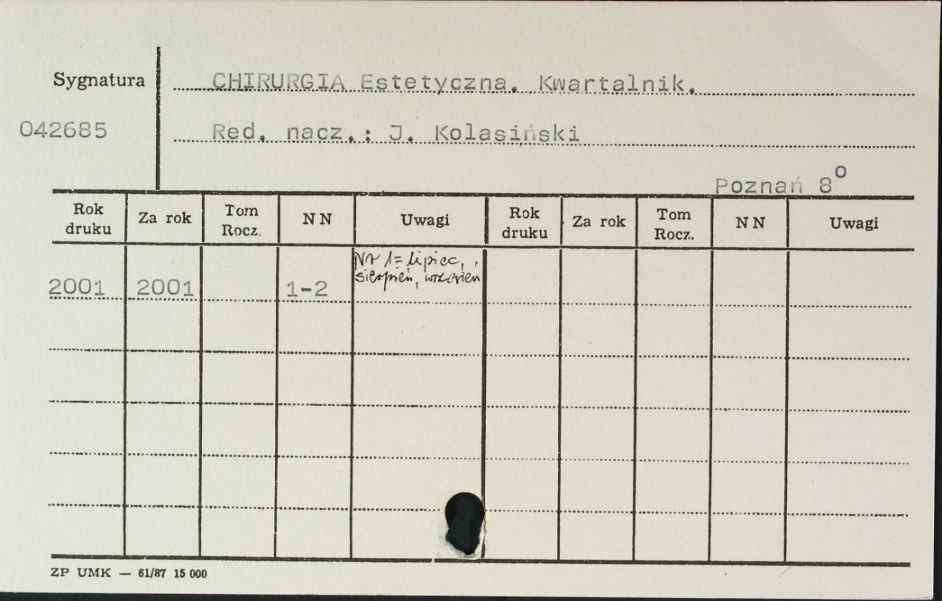 Sygnatura
CHIRURGIA Estetyczna. Kwartalnik.
042685
Red. nacz.: J. Kolasiński
Poznań 8⁰
Rok druku Za rok Tom Rocz. NN Uwagi Rok druku Za rok Tom Rocz. NN Uwagi
Nr 1 = lipiec,
sierpień, wrzesień
2001 2001 1-2
ZP UMK — 61/87 15 000